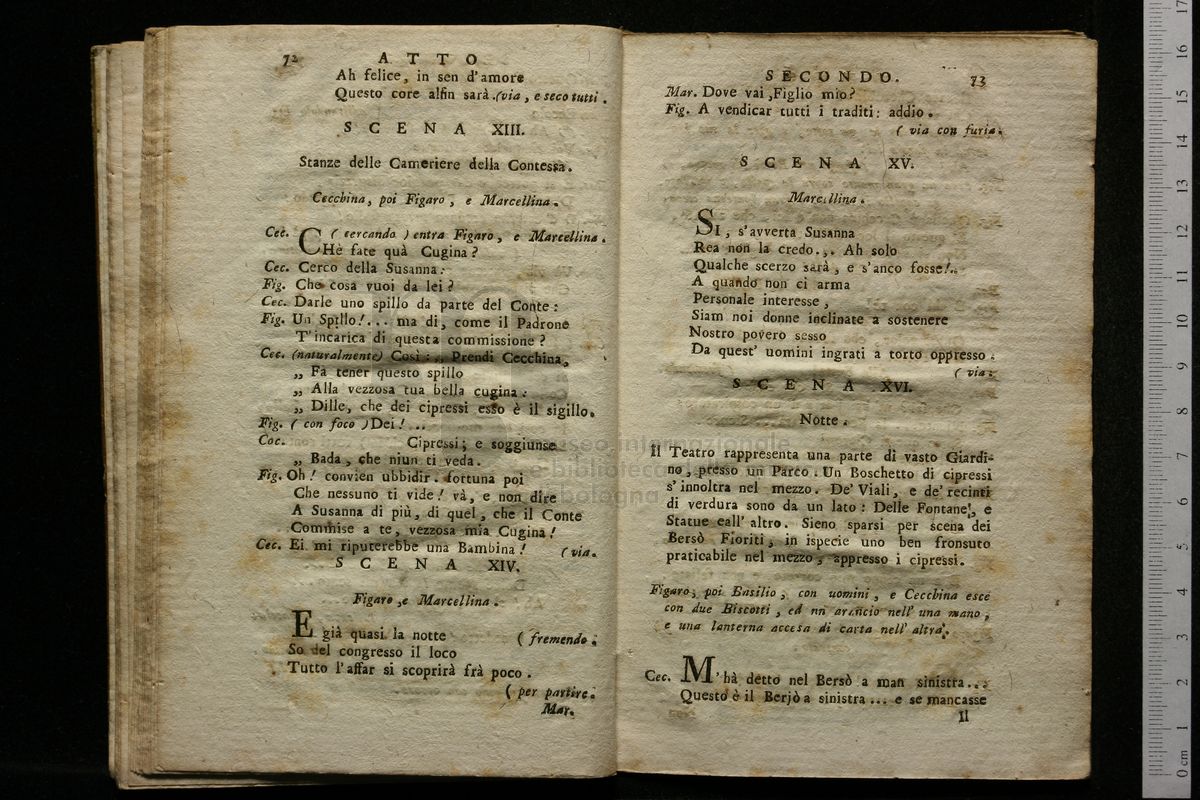 72 ATTO
Ah felice, in sen d'amore
Questo core alfin sarà. (via, e seco tutti.
SCENA XIII.
Stanze delle Cameriere della Contessa.
Cecchina, poi Figaro, e Marcellina.
Cec. (cercando) entra Figaro, e Marcellina.
CHè fate quà Cugina?
Cec. Cerco della Susanna:
Fig. Che cosa vuoi da lei?
Cec. Darle uno spillo da parte del Conte:
Fig. Un Spillo!... ma di, come il Padrone
T'incarica di questa commissione?
Cec. (naturalmente) Così: „ Prendi Cecchina,
„ Fà tener questo spillo
„ Alla vezzosa tua bella cugina:
„ Dille, che dei cipressi esso è il sigillo.
Fig. (con foco) Dei!...
Cec. Cipressi; e soggiunse
„ Bada, che niun ti veda.
Fig. Oh! convien ubbidir. fortuna poi
Che nessuno ti vide! và, e non dire
A Susanna di più, di quel, che il Conte
Commise a te, vezzosa mia Cugina!
Cec. Ei mi riputerebbe una Bambina! (via.
SCENA XIV.
Figaro, e Marcellina.
E già quasi la notte (fremendo.
So del congresso il loco
Tutto l'affar si scoprirà frà poco.
(per partire.
Mar.
SECONDO. 73
Mar. Dove vai, Figlio mio?
Fig. A vendicar tutti i traditi: addio.
(via con furia.
SCENA XV.
Marcellina.
SI, s'avverta Susanna
Rea non la credo... Ah solo
Qualche scerzo sarà, e s'anco fosse!..
A quando non ci arma
Personale interesse,
Siam noi donne inclinate a sostenere
Nostro povero sesso
Da quest' uomini ingrati a torto oppresso.
(via.
SCENA XVI.
Notte.
Il Teatro rappresenta una parte di vasto Giardi-
no, presso un Parco. Un Boschetto di cipressi
s'innoltra nel mezzo. De' Viali, e de' recinti
di verdura sono da un lato: Delle Fontane, e
Statue eall' altro. Sieno sparsi per scena dei
Bersò Fioriti, in ispecie uno ben fronsuto
praticabile nel mezzo, appresso i cipressi.
Figaro, poi Basilio, con uomini, e Cecchina esce
con due Biscotti, ed nn arancio nell' una mano,
e una lanterna accesa di carta nell' altra.
Cec. M'hà detto nel Bersò a man sinistra...
Questo è il Berjò a sinistra... e se mancasse
Il
museo internazionale
e biblioteca
bologna
0 cm 1 2 3 4 5 6 7 8 9 10 11 12 13 14 15 16 17